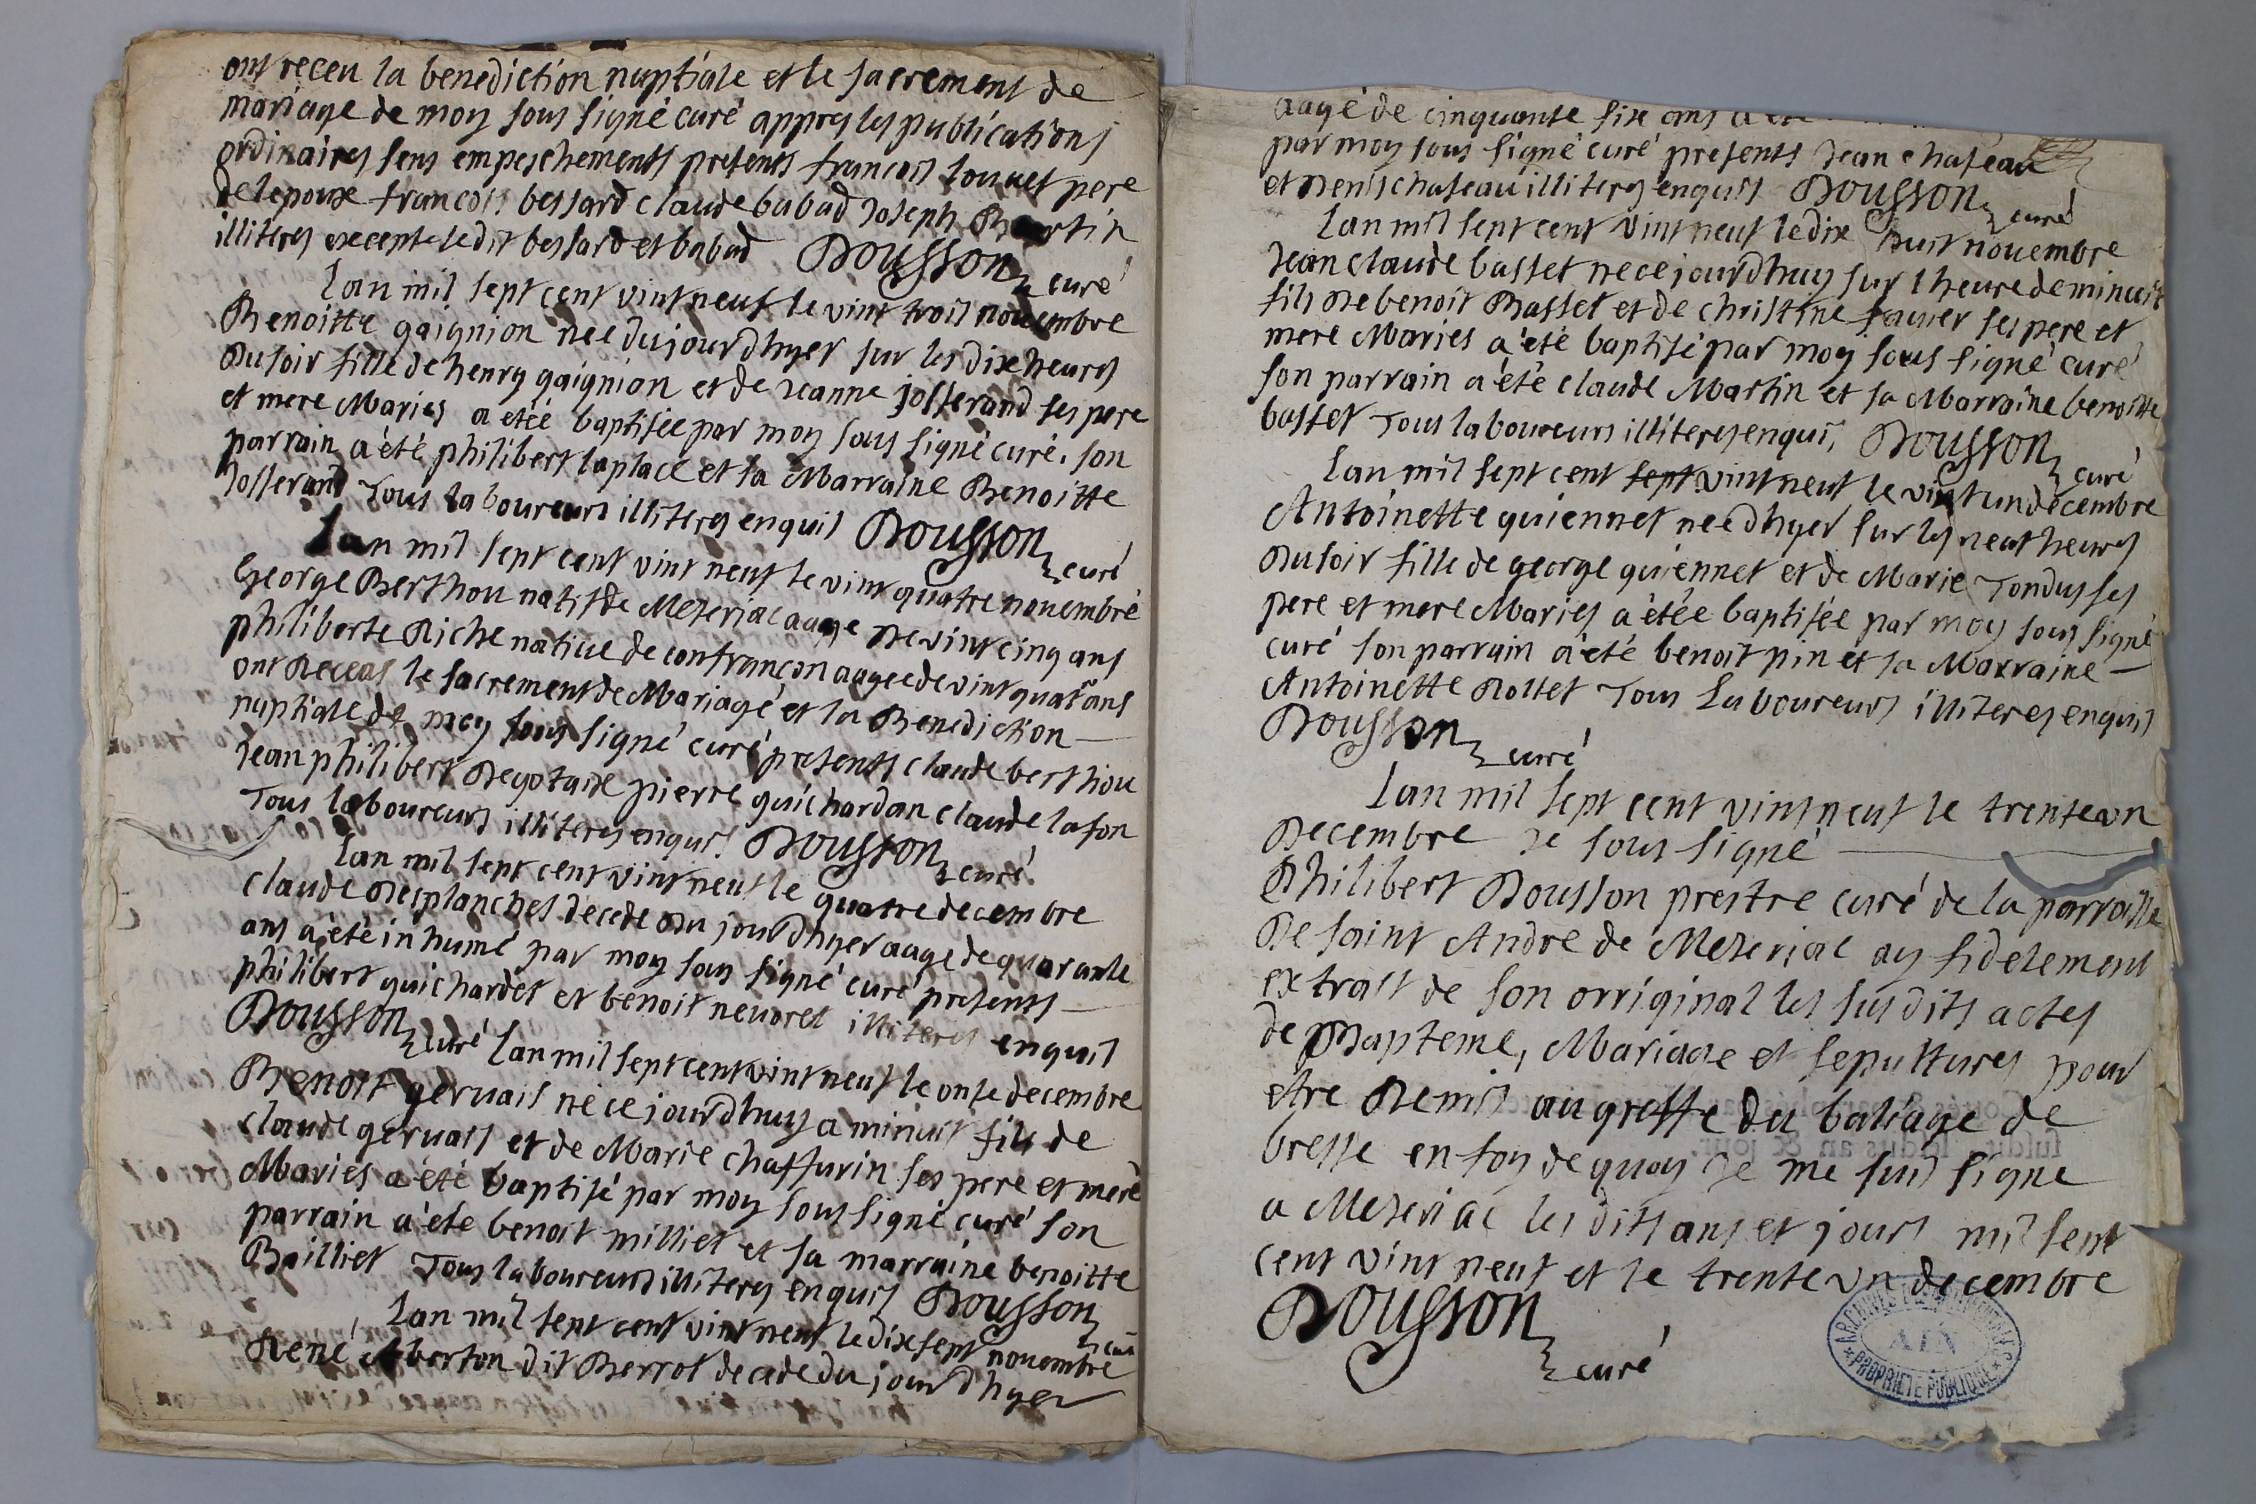 ont receu la benediction nuptiale et le sacrement de
mariage de moy sous signé curé appres les publications
ordinaires sens empeschements presents francois louuet pere
de lepoux francois bessard claude babad Joseph
illiteres excepte ledit bessard et babad Dousson curé
Lan mil sept cent vint neuf le vint trois nouembre
Benoitte gaignion née du jourdhyer sur les dix heures
du soir fille de henry gaignion et de Jeanne josserand ses pere
et mere Mariés a étéé baptisée par moy sous signé curé, son
parrain a été philibert laplace et sa Marraine Benoitte
Josserand Tous laboureurs illiteres enquis Dousson curé
Lan mil sept cent vint neuf le vint quatre nouembre
George Berthou natif de Meseriac aagé de vint cinq ans
philiberte Riche natiue de confrançon aagee de vint quatre ans
ont Receus le sacrement de Mariage et la Benediction
nuptiale de moy sous signé curé presents claude berthou
Jean philibert Degotaix pierre guichardan claude lafon
Tous laboureurs illiteres enquis Dousson curé
Lan mil sept cent vint neuf le quatre decembre
claude Desplanches decede du jourdhyer aagé de quarante
ans a été inhumé par moy sous signé curé presents
philibert guichardet et benoit neuoret illiteres enquis
Dousson curé Lan mil sept cent vint neuf le onse decembre
Benoit geruais né ce jourdhuy a minuit fils de
claude geruais et de Marie chaffurin ses pere et mere
Mariés a été baptisé par moy sous signé curé son
parrain a été benoit milliet et sa marraine benoitte
Bailliet Tous laboureurs illiteres enquis Dousson curé
Lan mil sept cent vint neuf le dix sept nouembre
René Aberton dit Berrot decede du jourdhyer
aagé de cinquante six ans a été
par moy sous signé curé presents Jean chateau
et Denis chateau illiteres enquis Dousson curé
Lan mil sept cent vint neuf le dix huit nouembre
Jean claude basset né ce jourdhuy sur lheure de minuit
fils de benoit Basset et de christine fauier ses pere et
mere Mariés a été baptisé par moy sous signé curé
son parrain a été claude Martin et sa Marraine benoitte
basset Tous laboureurs illiteres enquis Dousson curé
Lan mil sept cent sept vint neuf le vint un decembre
Antoinette guiennet née dhyer sur les neuf heures
du soir fille de george guiennet et de Marie Tondus ses
pere et mere Mariés a étée baptisée par moy sous signé
curé son parrain a été benoit pin et sa Marraine
Antoinette Rottet Tous Laboureurs illiteres enquis
Dousson curé
Lan mil sept cent vint neuf le trente vn
Decembre Je sous signé
Philibert Dousson prestre curé de la parroisse
de saint Andre de Meseriac ay fidelement
extrait de son orriginal les susdits actes
de Bapteme, Mariage et sepultures pour
etre Remis au greffe du baliage de
bresse en foy de quoy Je me suis signe
a Meseriac les dits ans et jours mil sept
cent vint neuf et le trente vn decembre
Dousson curé
ARCHIVES
AIN
PROPRIETE PUBLIQUE